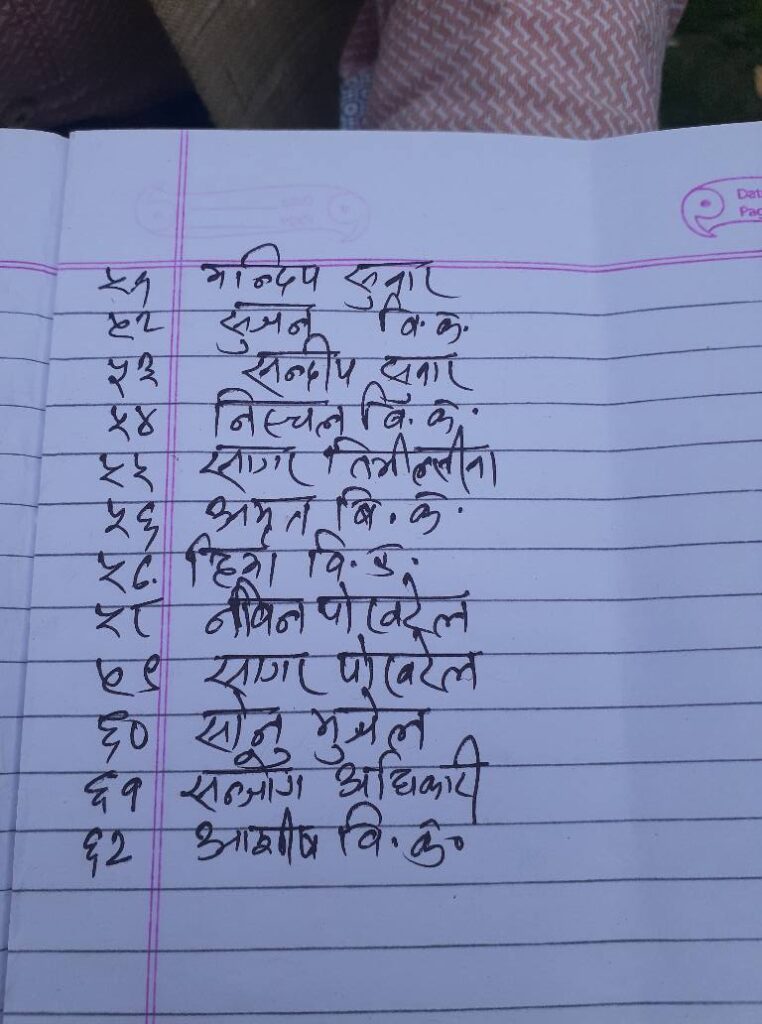 Dat
Pag
५१ मन्दिप सुनार
५२ सुजन वि. क.
५३ सन्दीप सुनार
५४ निस्चल बि. क.
५५ सागर तिमील्सीना
५६ अमृत बि. क.
५८ हिमा वि. क.
५८ नबिन पोखरेल
५९ सागर पोखरेल
६० सोनु मुजेल
६१ सन्जोग अधिकारी
६२ आशीष वि. क.